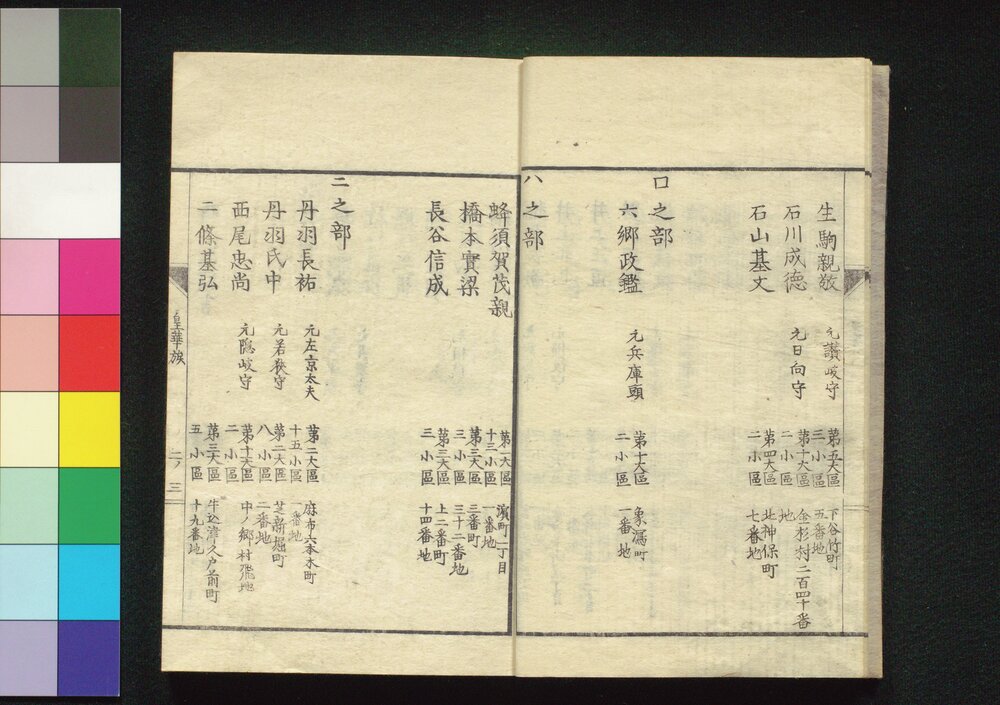 生駒親敬
元讃岐守
第五大區
三小區
下谷竹町
五番地
石川成德
元日向守
第十大區
二小區
金杉村二百四十番
地
石山基文
第四大區
二小區
北神保町
七番地
ロ之部
六郷政鑑
元兵庫頭
第十大區
二小區
象潟町
一番地
ハ之部
蜂須賀茂親
第一大區
十三小區
濱町二丁目
一番地
橋本實梁
第三大區
三小區
三番町
三十二番地
長谷信成
第三大區
三小區
上二番町
十四番地
二之部
丹羽長祐
元左京太夫
第二大區
十五小區
麻布六本木町
一番地
丹羽氏中
元若狭守
第二大區
八小區
芝新堀町
二番地
西尾忠尚
元隠岐守
第十大區
二小區
中ノ郷村飛地
二條基弘
第三大區
五小區
牛込津久戸前町
十九番地
皇華族
二ノ三